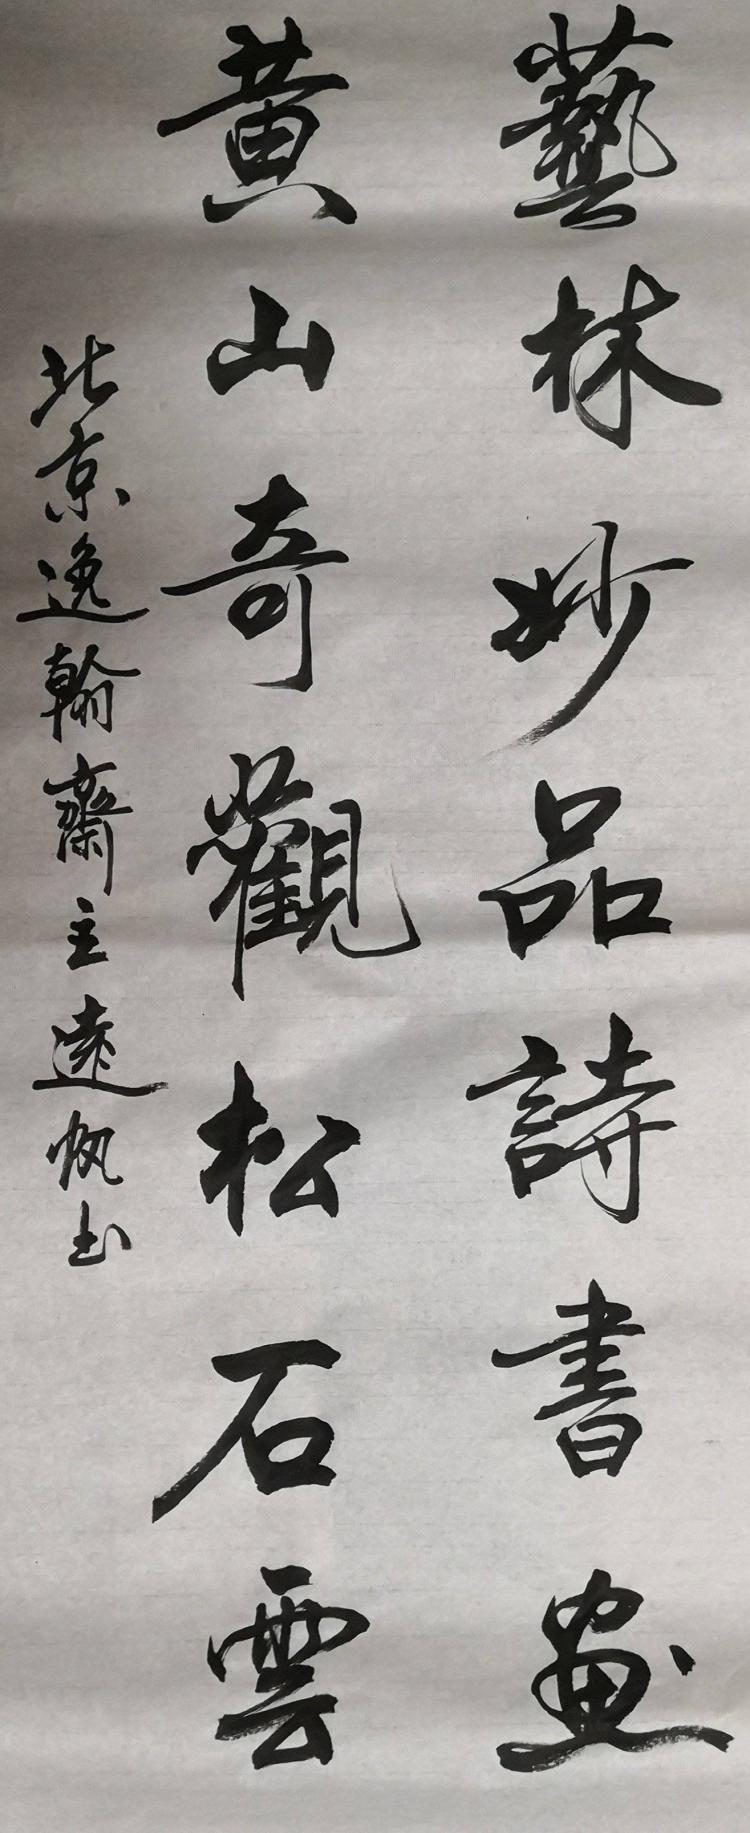 藝林妙品詩書画
黄山奇觀松石雲
北京逸翰齋主遠帆书